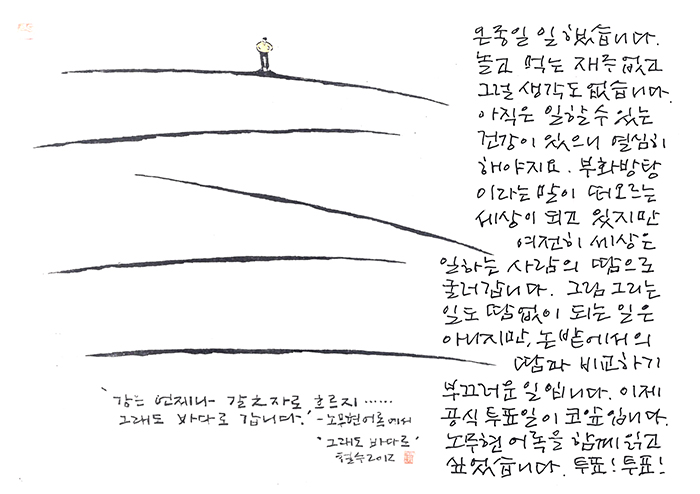 온종일 일 했습니다.
놀고 먹는 재주 없고
그럴 생각도 없습니다.
아직은 일할 수 있는
건강이 있으니 열심히
해야지요. 부화방탕
이라는 말이 떠오르는
세상이 되고 있지만
여전히 세상은
일하는 사람의 땀으로
굴러갑니다. 그림 그리는
일도 땀없이 되는 일은
아니지만, 논밭에서의
땀과 비교하기
부끄러운 일입니다. 이제
공식 투표일이 코앞입니다.
노무현 어록을 함께 읽고
싶었습니다. 투표! 투표!
'강은 언제나 갈 之자로 흐르지……
그래도 바다로 갑니다.' -노무현어록에서
'그래도 바다로'
철수2012